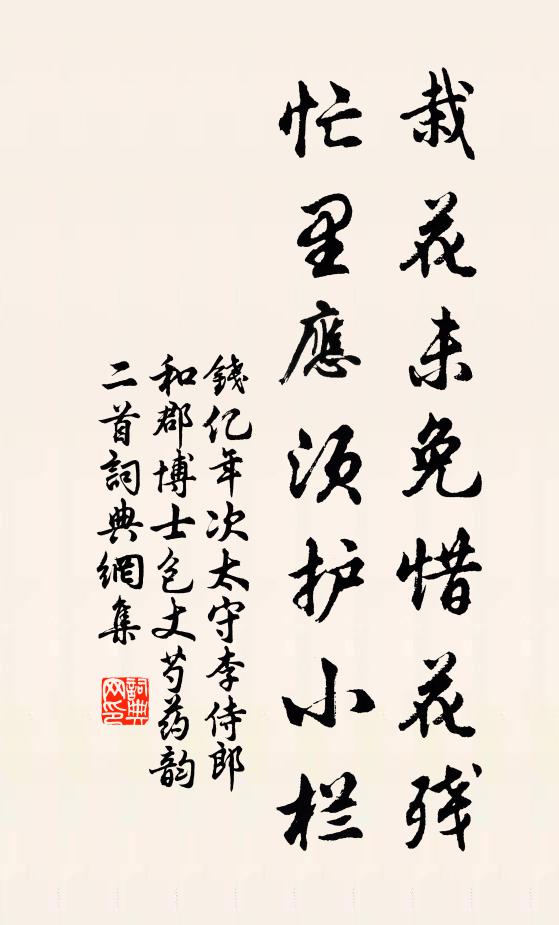 栽花未免惜花残
忙里應须护小栏
錢亿年次太守李侍郎
和郡博士包丈芍药韵
二首詞典網集
詞典网印